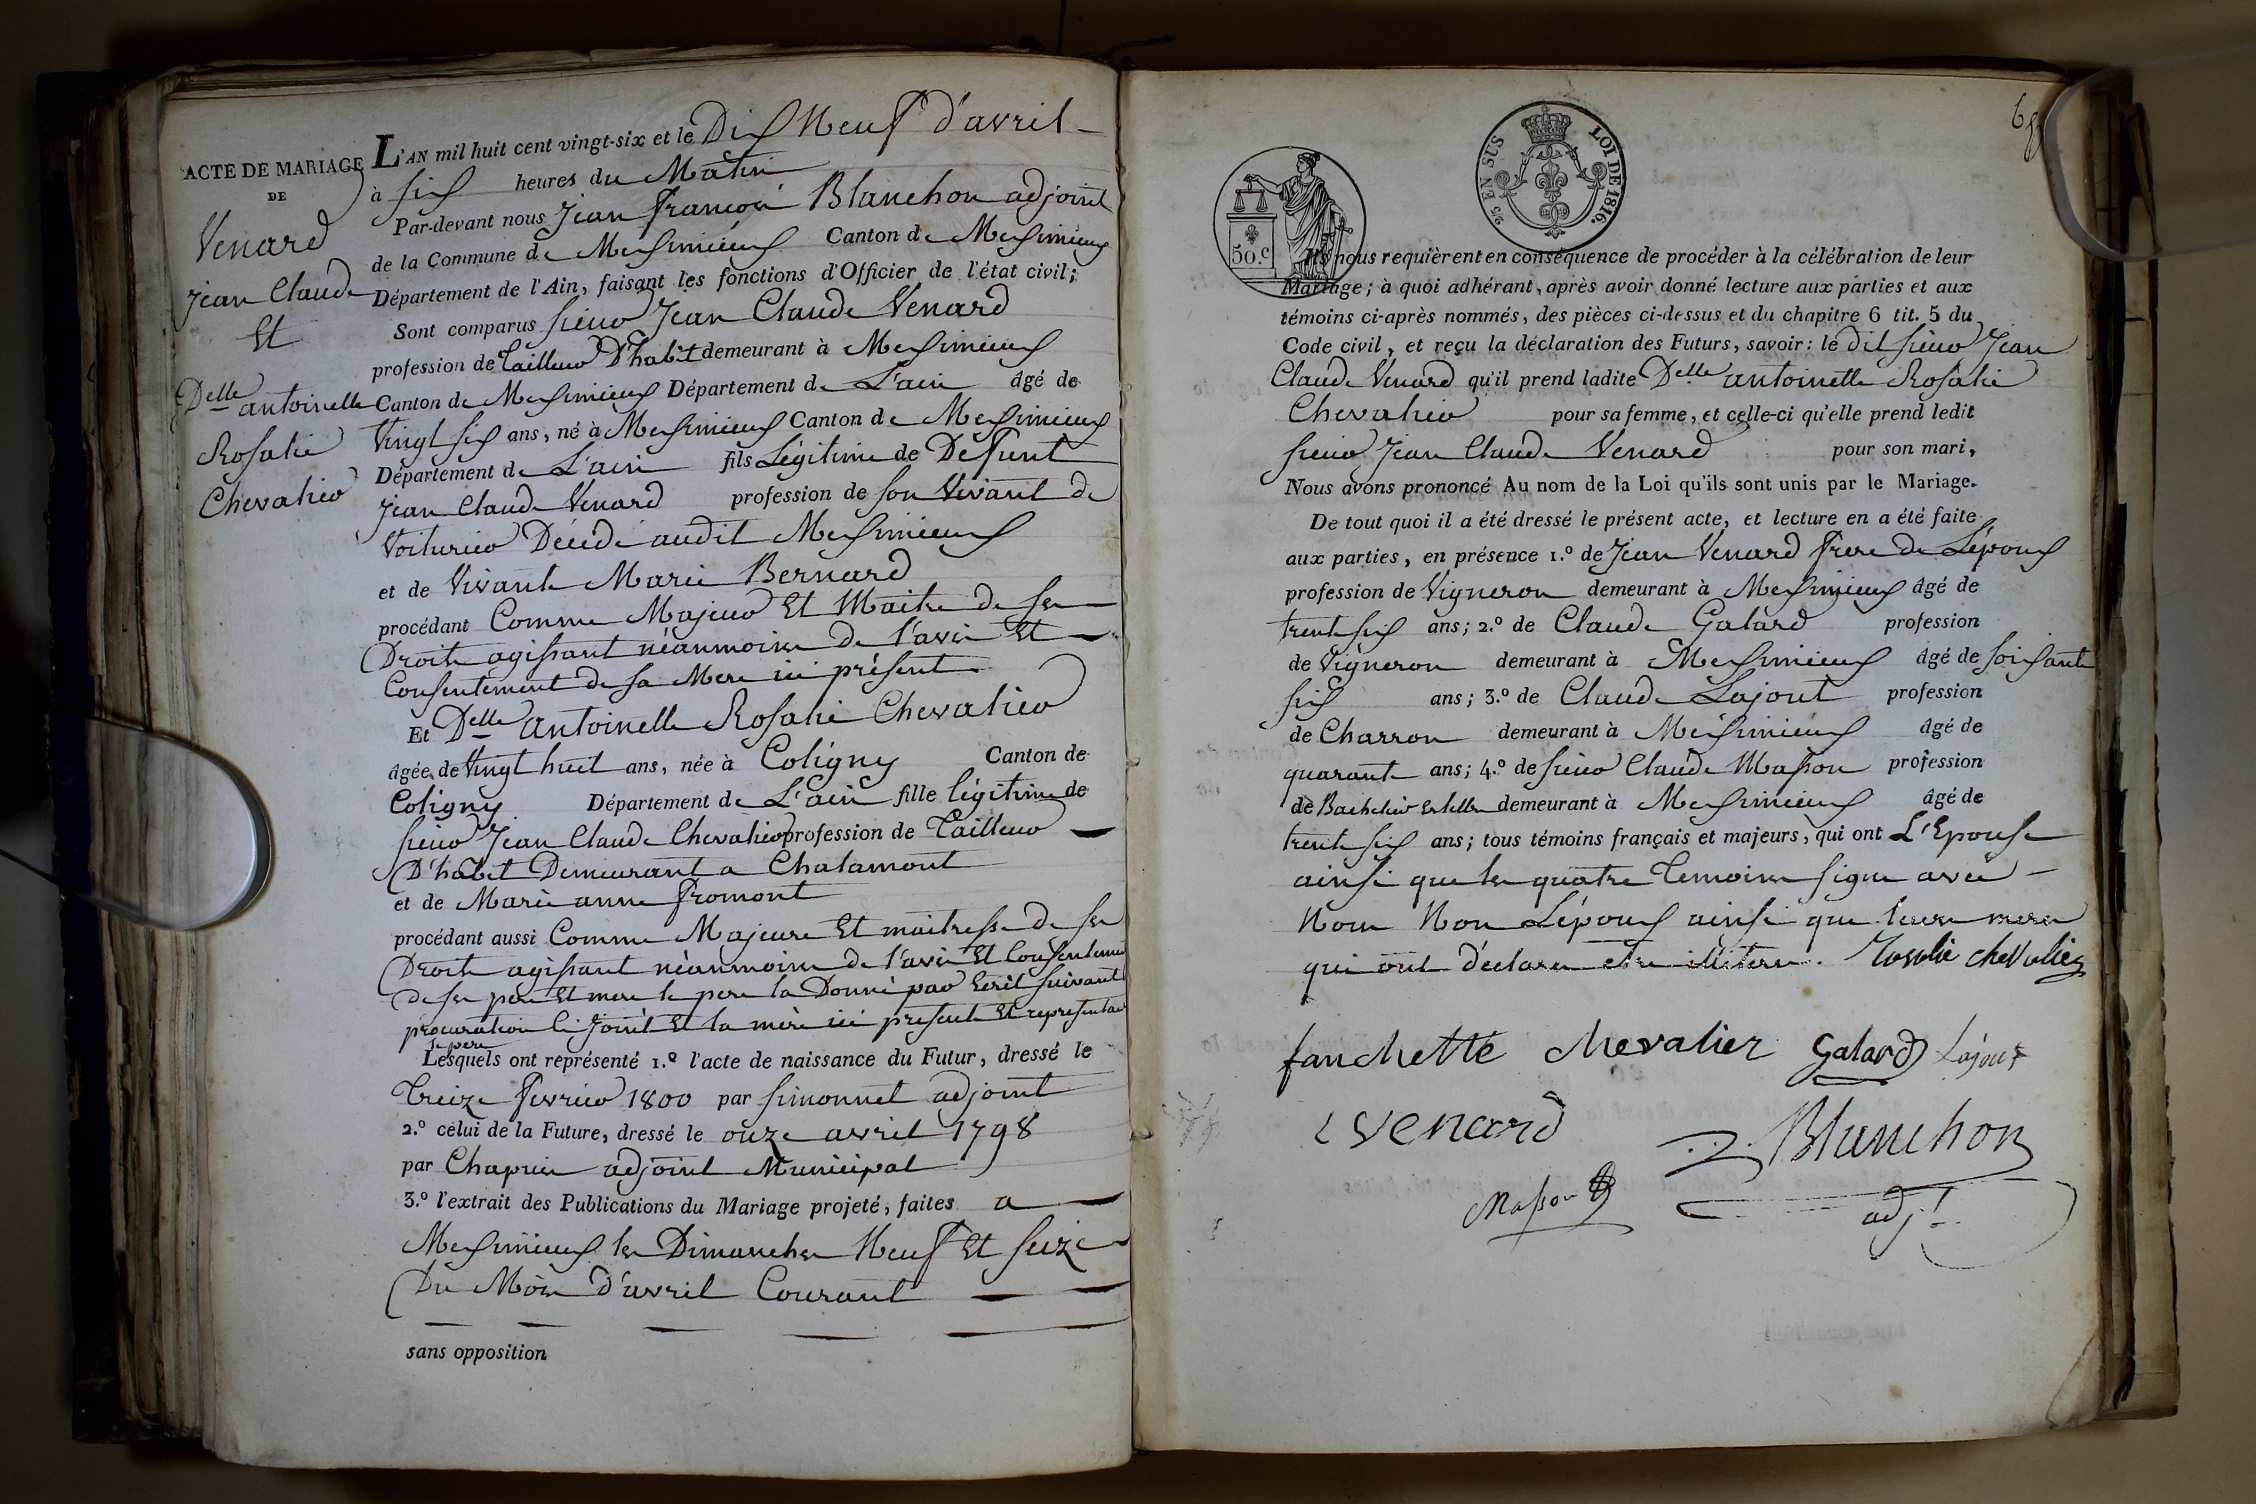 ACTE DE MARIAGE
DE
Venard
Jean Claude
Et
Delle antoinette
Rosalie
Chevalier
L'AN mil huit cent vingt-six et le Dix Neuf d'avril
à six heures du Matin
Par-devant nous Jean françois Blanchon adjoint
de la Commune de Meximieux Canton de Meximieux
Département de l'Ain, faisant les fonctions d'Officier de l'état civil;
Sont comparus sieur Jean Claude Venard
profession de Tailleur D'habit demeurant à Meximieux
Canton de Meximieux Département de L'ain âgé de
Vingt six ans, né à Meximieux Canton de Meximieux
Département de L'ain fils Légitime de Defunt
Jean Claude Venard profession de son Vivant de
Voiturier Décédé audit Meximieux
et de Vivante Marie Bernard
procédant Comme Majeur Et Maitre de ses
Droits agissant néanmoins de l'avis Et
Consentement de sa Mere ici présente
Et Delle antoinette Rosalie Chevalier
âgée de Vingt huit ans, née à Coligny Canton de
Coligny Département de L'ain fille légitime de
sieur Jean Claude Chevalier profession de Tailleur
D'habit Demeurant a Chalamont
et de Marie anne fromont
procédant aussi Comme Majeure Et maitresse de ses
Droits agissant néanmoins de l'avis Et Consentement
de ses pere Et mere le pere la Donné par Ecrit suivant
procuration ci joint Et la mère ici presente Et representant
le pere
Lesquels ont représenté 1.º l'acte de naissance du Futur, dressé le
Treize fevrier 1800 par simonnet adjoint
2.º celui de la Future, dressé le onze avril 1798
par Chapuis adjoint Municipal
3.º l'extrait des Publications du Mariage projeté, faites a
Meximieux les Dimanches Neuf Et seize
Du Mois d'avril Courant
sans opposition
50.c
25 EN SUS LOI DE 1816.
Ils nous requièrent en conséquence de procéder à la célébration de leur
Mariage; à quoi adhérant, après avoir donné lecture aux parties et aux
témoins ci-après nommés, des pièces ci-dessus et du chapitre 6 tit. 5 du
Code civil, et reçu la déclaration des Futurs, savoir: le dit sieur Jean
Claude Venard qu'il prend ladite Delle antoinette Rosalie
Chevalier pour sa femme, et celle-ci qu'elle prend ledit
sieur Jean Claude Venard pour son mari,
Nous avons prononcé Au nom de la Loi qu'ils sont unis par le Mariage.
De tout quoi il a été dressé le présent acte, et lecture en a été faite
aux parties, en présence 1.º de Jean Venard frere de L'époux
profession de Vigneron demeurant à Meximieux âgé de
trente six ans; 2.º de Claude Galard profession
de Vigneron demeurant à Meximieux âgé de soixante
six ans; 3.º de Claude Lajont profession
de Charron demeurant à Meximieux âgé de
quarante ans; 4.º de sieur Claude Masson profession
de Bachelier es lettre demeurant à Meximieux âgé de
trente six ans; tous témoins français et majeurs, qui ont L'Epouse
ainsi que les quatre Temoins signe avec
Nous Non L'époux ainsi que leurs meres
qui ont déclare etre illiteres. Rosalie chevalier
fanchette chevalier Galard Lajont
venard Blanchon
Masson adjt